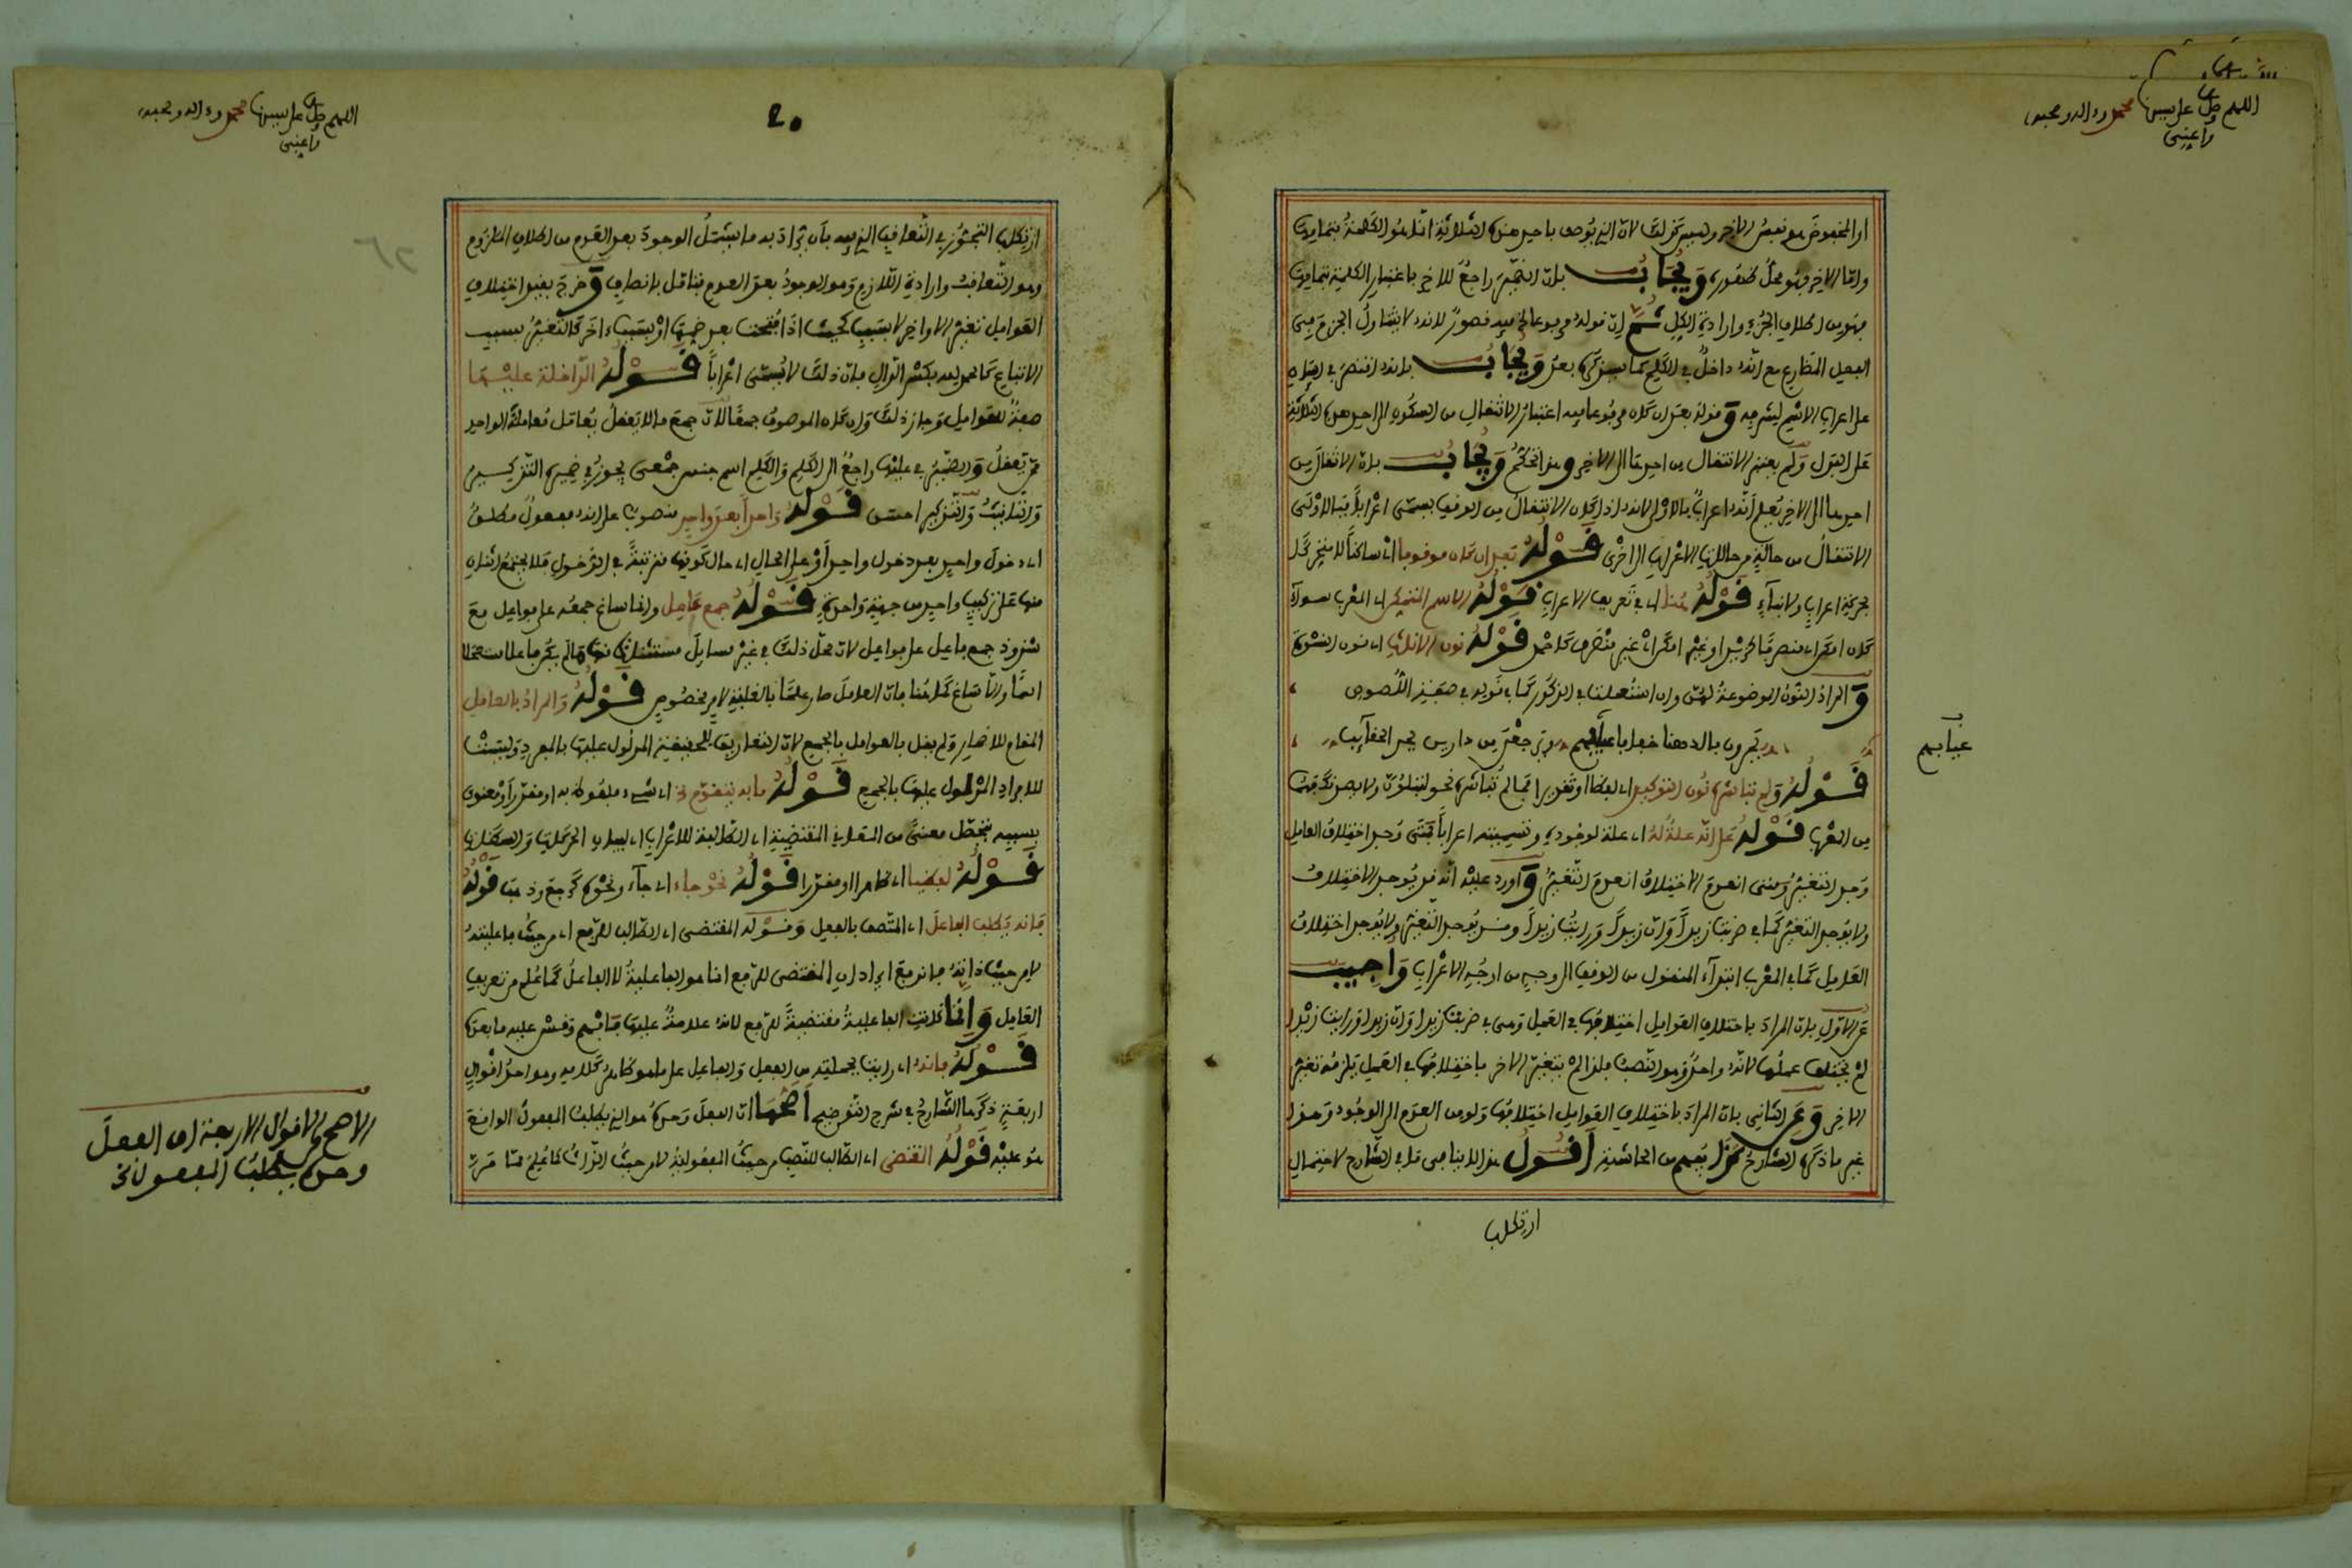 اللهم صل على سيدنا محمد وءاله وصحبه
وأعني
او المخفوض هو نفس الاخر وليس كذلك لان الذي يوصف باحد هذه الثلاثة انما هو الكلمة بتمامها
واما الاخر فهو محل ظهوره ويجاب بان الضمير راجع للاخر باعتبار الكلمة بتمامها
فهو من اطلاق الجزء وارادة الكل ثم ان قوله مرفوعا فيه قصور لانه لا يتناول الجزم في
الفعل المضارع مع انه داخل في الكلم كما سيذكره بعد ويجاب بانه اقتصر في
على اعراب الاسم لشرفه وقوله بعد ان كان موقوفا فيه اعتبار الانتقال من السكون الى احد هذه الثلاثة
على القول ولم يعتبر الانتقال من احدها الى الاخر وهذا تحكم ويجاب بان الانتقال من
احدها الى الاخر يعلم انه اعراب بالاولى لانه اذا كان الانتقال من الوقف يسمى اعرابا فبالاولى
الانتقال من حالة من حالات الاعراب الى اخرى قوله بعد ان كان موقوفا اي ساكنا للا متحركا
بحركة اعراب ولا بناء قوله هنا اي في تعريف الاعراب قوله الاسم المتمكن اي المعرب سواء
كان امكن اي منصرفا كزيد او غير امكن اي غير منصرف كاحمد قوله نون الاناث اي نون النسوة
والمراد النون الموضوعة لهن وان استعملت في الذكور كما في قوله في صفة اللصوص
يمرون بالدهنا خفافا عيابهم ويرجعن من دارين بجر الحقائب
عيابهم
قوله ولم تباشره نون التوكيد اي لفظا او تقديرا فما لم تباشره نحو لتبلون ولا يصدنك فهما
من المعرب قوله على انه علة له اي علة لوجوده وتسميته اعرابا فمتى وجد اختلاف العامل
وجد التغيير ومتى انعدم الاختلاف انعدم التغيير وأورد عليه انه قد يوجد الاختلاف
ولا يوجد التغيير كما في ضربت زيدا وان زيدا ورايت زيدا وقد يوجد التغيير ولا يوجد اختلاف
العوامل كما في المعرب ابتداء المنقول من الوقف الى وجه من اوجه الاعراب واجيب
عن الاول بان المراد باختلاف العوامل اختلافها في العمل وهي في ضربت زيدا وان زيدا ورايت زيدا
لم يختلف عملها لانه واحد وهو النصب فلذا لم يتغير الاخر باختلافها في العمل يلزمه تغير
الاخر وعن الثاني بان المراد باختلاف العوامل اختلافها ولو من العدم الى الوجود وهذا
غير ما ذكره الشارح كذا يفهم من الحاشية أقول هذا لا ينافي ما في الشارح لاحتمال
ارتكاب
اللهم صل على سيدنا محمد وءاله وصحبه
وأعني
40
ارتكاب التجوز في التعاقب الذي فيه بان يراد به ما يشمل الوجود بعد العدم من اطلاق الملزوم
وهو التعاقب وارادة اللازم وهو الوجود بعد العدم فتامل بانصاف وخرج بقيد اختلاف
العوامل تغير الاواخر لا بسبب كحيث اذا فتحت بعد ضمها او بسبب اخر كالتغير بسبب
الاتباع كالحمد لله بكسر الدال فان ذلك لا يسمى اعرابا قوله الداخلة عليها
صفة للعوامل وجاز ذلك وان كان الموصوف جمعا لان جمع ما لا يعقل يعامل معاملة الواحد
ممن يعقل والضمير في عليها راجع الى الكلم والكلم اسم جنس جمعي يجوز في ضميره التذكير
والتانيث والتذكير احسن قوله واحدا بعد واحد منصوب على انه مفعول مطلق
اي دخول واحد بعد دخول واحد أو على الحال اي حال كونها مترتبة في الدخول فلا يجتمع اثنان
منها على تركيب واحد من جهة واحدة قوله جمع عامل وانما ساغ جمعه على فواعل مع
شذوذ جمع فاعل على فواعل لان محل ذلك في غير مسايل مستثناة منها ما لم يكن فاعلا مستعملا
اسما وانما ساغ كما هنا فان العامل صار علما بالغلبة لامر مخصوص قوله والمراد بالعامل
المقام للاضمار ولم يقل بالعوامل بالجمع لان التعاريف للحقيقة المدلول عليها بالمفرد وليست
للافراد المدلول عليها بالجمع قوله ما به يتقوم الخ اي شيء ملفوظ به او مقدر أو معنوي
بسببه يتحصل معنى من المعاني المقتضية اي الطالبة للاعراب اي لبيان الحركات والسكنات
قوله لفظا اي ظاهرا او مقدرا قوله نحو جاء اي جاء ونحوه كرجع وذهب قوله
فانه يطلب الفاعل اي المتصف بالفعل وقوله المقتضي اي الطالب للرفع اي من حيث فاعليته
لا من حيث ذاته فاندفع ايراد ان المقتضي للرفع انما هو الفاعلية لا الفاعل كما علم من تعريف
العامل وانما كانت الفاعلية مقتضية للرفع لانه علامة عليها فافهم وقس عليه ما بعده
قوله فانه اي رايت بجملته من الفعل والفاعل على ما هو ظاهر كلامه وهو احد اقوال
اربعة ذكرها الشارح في شرح التوضيح أصحها ان الفعل وحده هو الذي يطلب المفعول الواقع
هو عليه قوله المقتضي اي الطالب للنصب من حيث المفعولية لا من حيث الذات كما علم مما مر
الاصح من الاقوال الاربعة ان الفعل
وحده يطلب المفعول الخ